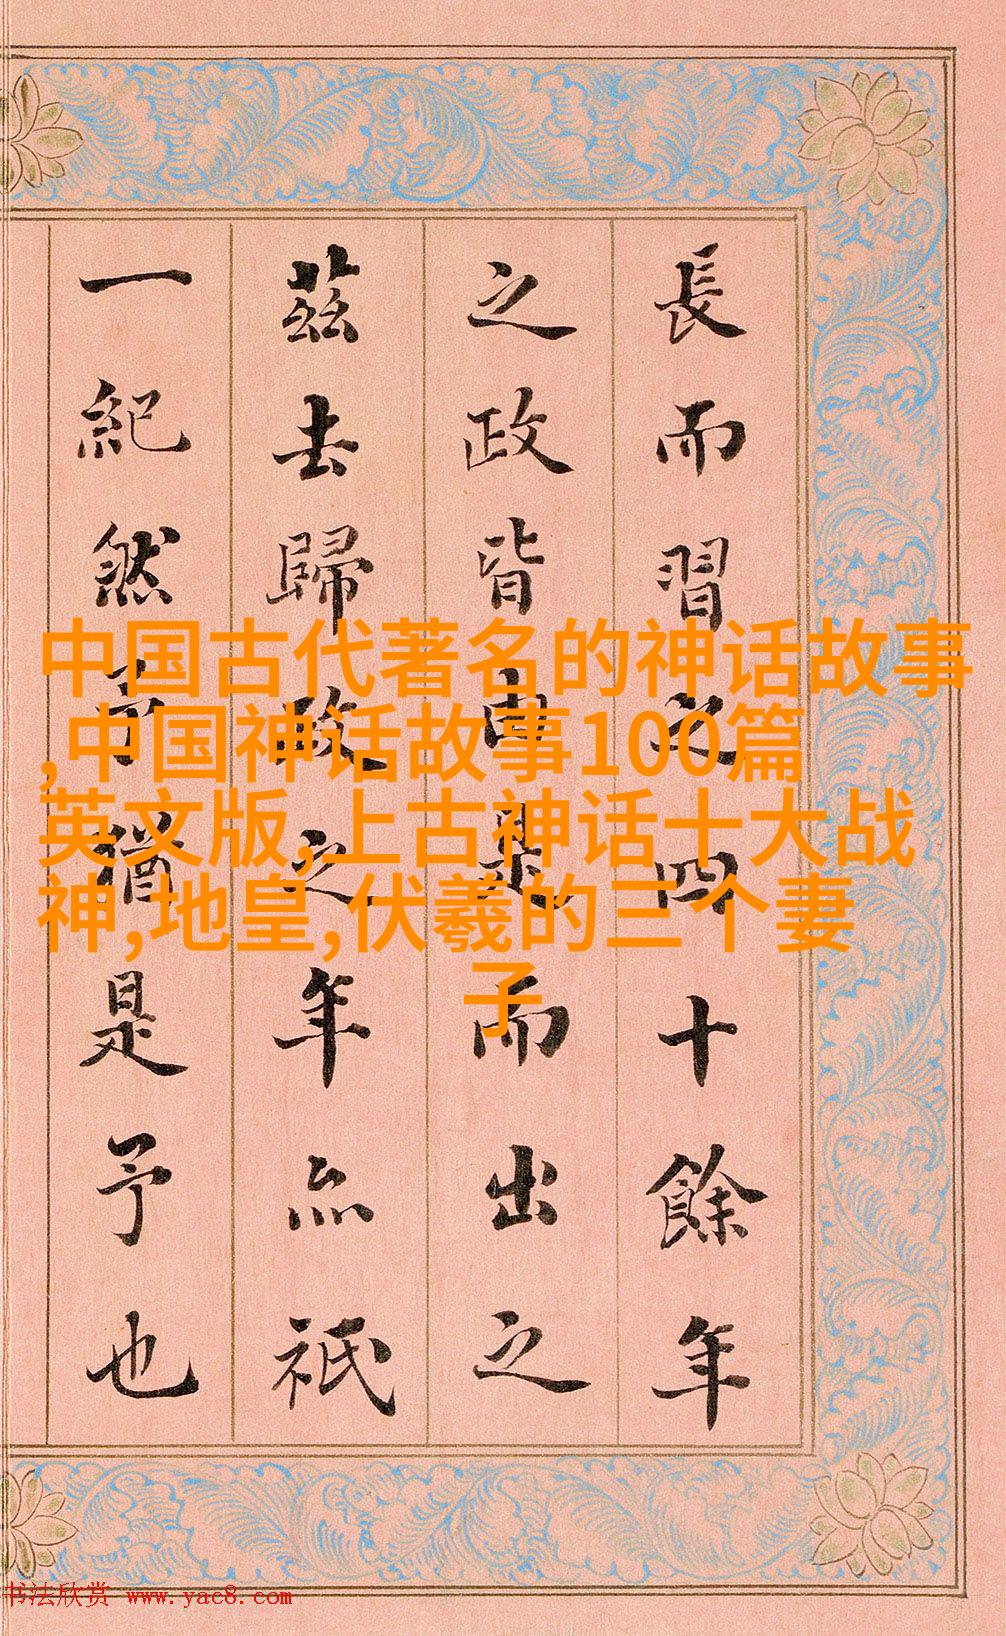 長而習之四十餘年
之政皆由是而出之
茲去歸政之年亦祇
一紀然予猶是予也
中国古代著名的神话故事
,中国神话故事100篇
英文版,上古神话十大战
神,地皇,伏羲的三个妻
子
书法欣赏 www.yac8.com